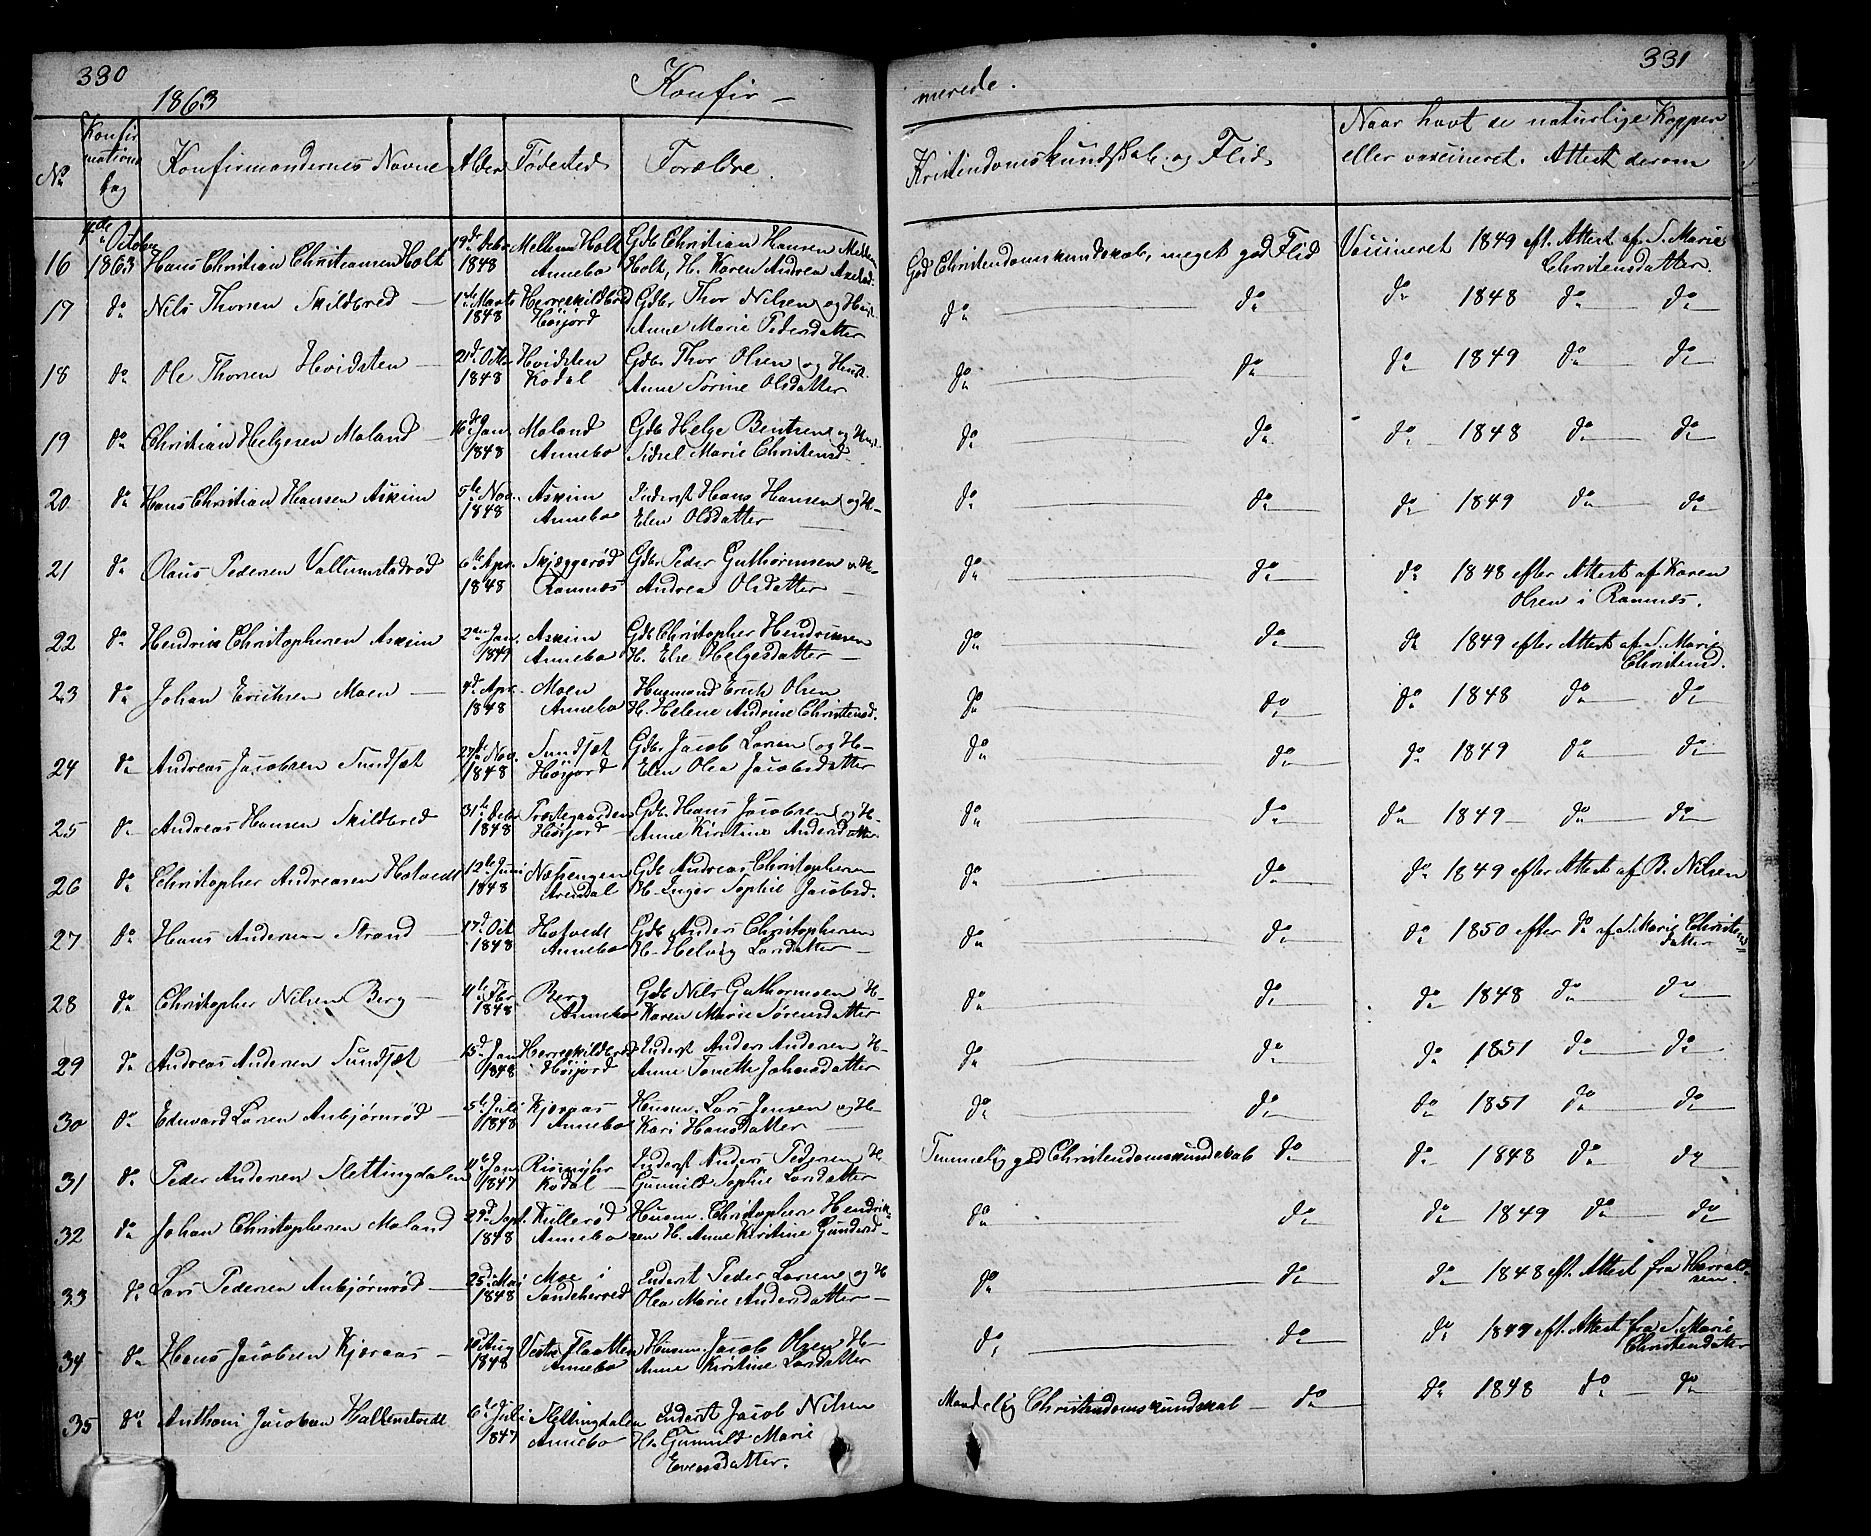 330
1863
Konfir-
No
Konfir
mations
dag
Konfirmandernes Navne
Alder
Fødested
Forældre.
16
4de October
1863
Hans Christian Christiansen Holt
19de Debr
1848
Mellem Holt
Annebo
Gdb Christian Hansen Mellem
Holt, H. Karen Andrea
17
do
Nils Thorsen Skildbred
1ste Marts
1848
Herreskildbred
Høijord
Gdbr Thor Nilsen og Hust.
Anne Marie Pedersdatter
18
do
Ole Thorsen Hvidsten
21de Octbr
1848
Hvidsten
Kodal
Gdbr Thor Olsen og Hust.
Anne Sorine Olsdatter
19
do
Christian Helgesen Moland
16de Jan.
1848
Moland
Annebo
Gdb Helge Bentsen og Hust
Sidsel Marie Christensd.
20
do
Hans Christian Hansen Askim
5te Nov.
1848
Askim
Annebo
Inderst Hans Hansen og H-
Elen Olsdatter
21
do
Olaus Pedersen Vallumstadrød
6te Apr.
1848
Skjeggerød
Ramnæs
Gdb. Peder Guthormsen o H-
Andrea Olsdatter
22
do
Hendrik Christophersen Askim
2den Jan.
1849
Askim
Annebo
Gdb Christopher Hendriksen
H. Else Helgesdatter
23
do
Johan Ericksen Moen
4de Apr.
1848
Moen
Annebo
Huusmand Erick Olsen
H. Helene Andrine Christensd.
24
do
Andreas Jacobsen Sundset
27de Nov.
1848
Sundset
Høijord
Gdbr Jacob Larsen og H-
Elen Olea Jacobsdatter
25
do
Andreas Hansen Skildbred
31te Debr
1848
Præstegaarden
Høijord
Gdb. Hans Jacobsen og H-
Anne Kirstine Andersdatter.
26
do
Christopher Andreasen Hotvedt
12te Juni
1848
Arendal
Gdb Andreas Christophersen
H. Inger Sophie Jacobsd.
27
do
Hans Andersen Strand
17de Oct
1848
Hotvedt
Annebo
Gdb Anders Christophersen
H- Helvig Larsdatter
28
do
Christopher Nilsen Berg
4de Fbr
1848
Berg
Annebo
Gdb Nils Guthormsen H-
Karen Marie Sørensdatter
29
do
Andreas Andersen Sundset
15de Jan
1848
Herreskildbred
Høijord
Inderst Anders Andersen H-
Anne Tonette Johansdatter
30
do
Edvard Larsen Anbjørnrød
5te Juli
1848
Kjæraas
Annebo
Husm. Lars Jensen og H-
Kari Hansdatter
31
do
Peder Andersen Slettingdalen
4de Jan
1847
Rismyhr
Kodal
Inderst Anders Pedersen H
Gunnild Sophie Larsdatter
32
do
Johan Christophersen Moland
29de Sept.
1848
Kullerød
Annebo
Husm. Christopher Hendrik-
sen H. Anne Kirstine Gundersd-
33
do
Lars Pedersen Anbjørnrød
25de Mai
1848
Moe i
Sandeherred
Inderst Peder Larsen og H
Olea Marie Andersdatter
34
do
Hans Jacobsen Kjæraas
10de Aug
1848
Vestre Flaatten
Annebo
Husm. Jacob Olsen H-
Anne Kirstine Larsdatter
35
do
Anthoni Jacobsen Hallenstvedt
6te Juli
1847
Slettingdalen
Annebo
Inderst Jacob Nilsen
H. Gunnild Marie
Evensdatter.
331
merede.
Kristindomskundskab og Flid
Naar havt de naturlige Kopper
eller vaccineret. Attest derom
God Christendomskundskab, meget god Flid
Vaccineret 1849 eft. Attest af S. Marie
Christensdatter.
do do do 1848 do do
do do do 1849 do do
do do do 1848 do do
do do do 1849 do do
do do do 1848 efter Attest af Karen
Olsen i Ramnæs.
do do do 1849 efter Attest af S. Marie
Christensd.
do do do 1848 do do
do do do 1849 do do
do do do 1849 do do
do do do 1849 efter Attest af B. Nilsen
do do do 1850 efter do af S. Marie Christens
datter
do do do 1848 do do
do do do 1851 do do
do do do 1851 do do
Temmelig god Christendomskundskab do do 1848 do do
do do do 1849 do do
do do do 1848 eft. Attest fra Harrald-
sen.
do do do 1849 eft. Attest fra S. Marie
Christensdatter
Maadelig Christendomskundskab do do 1848 do do